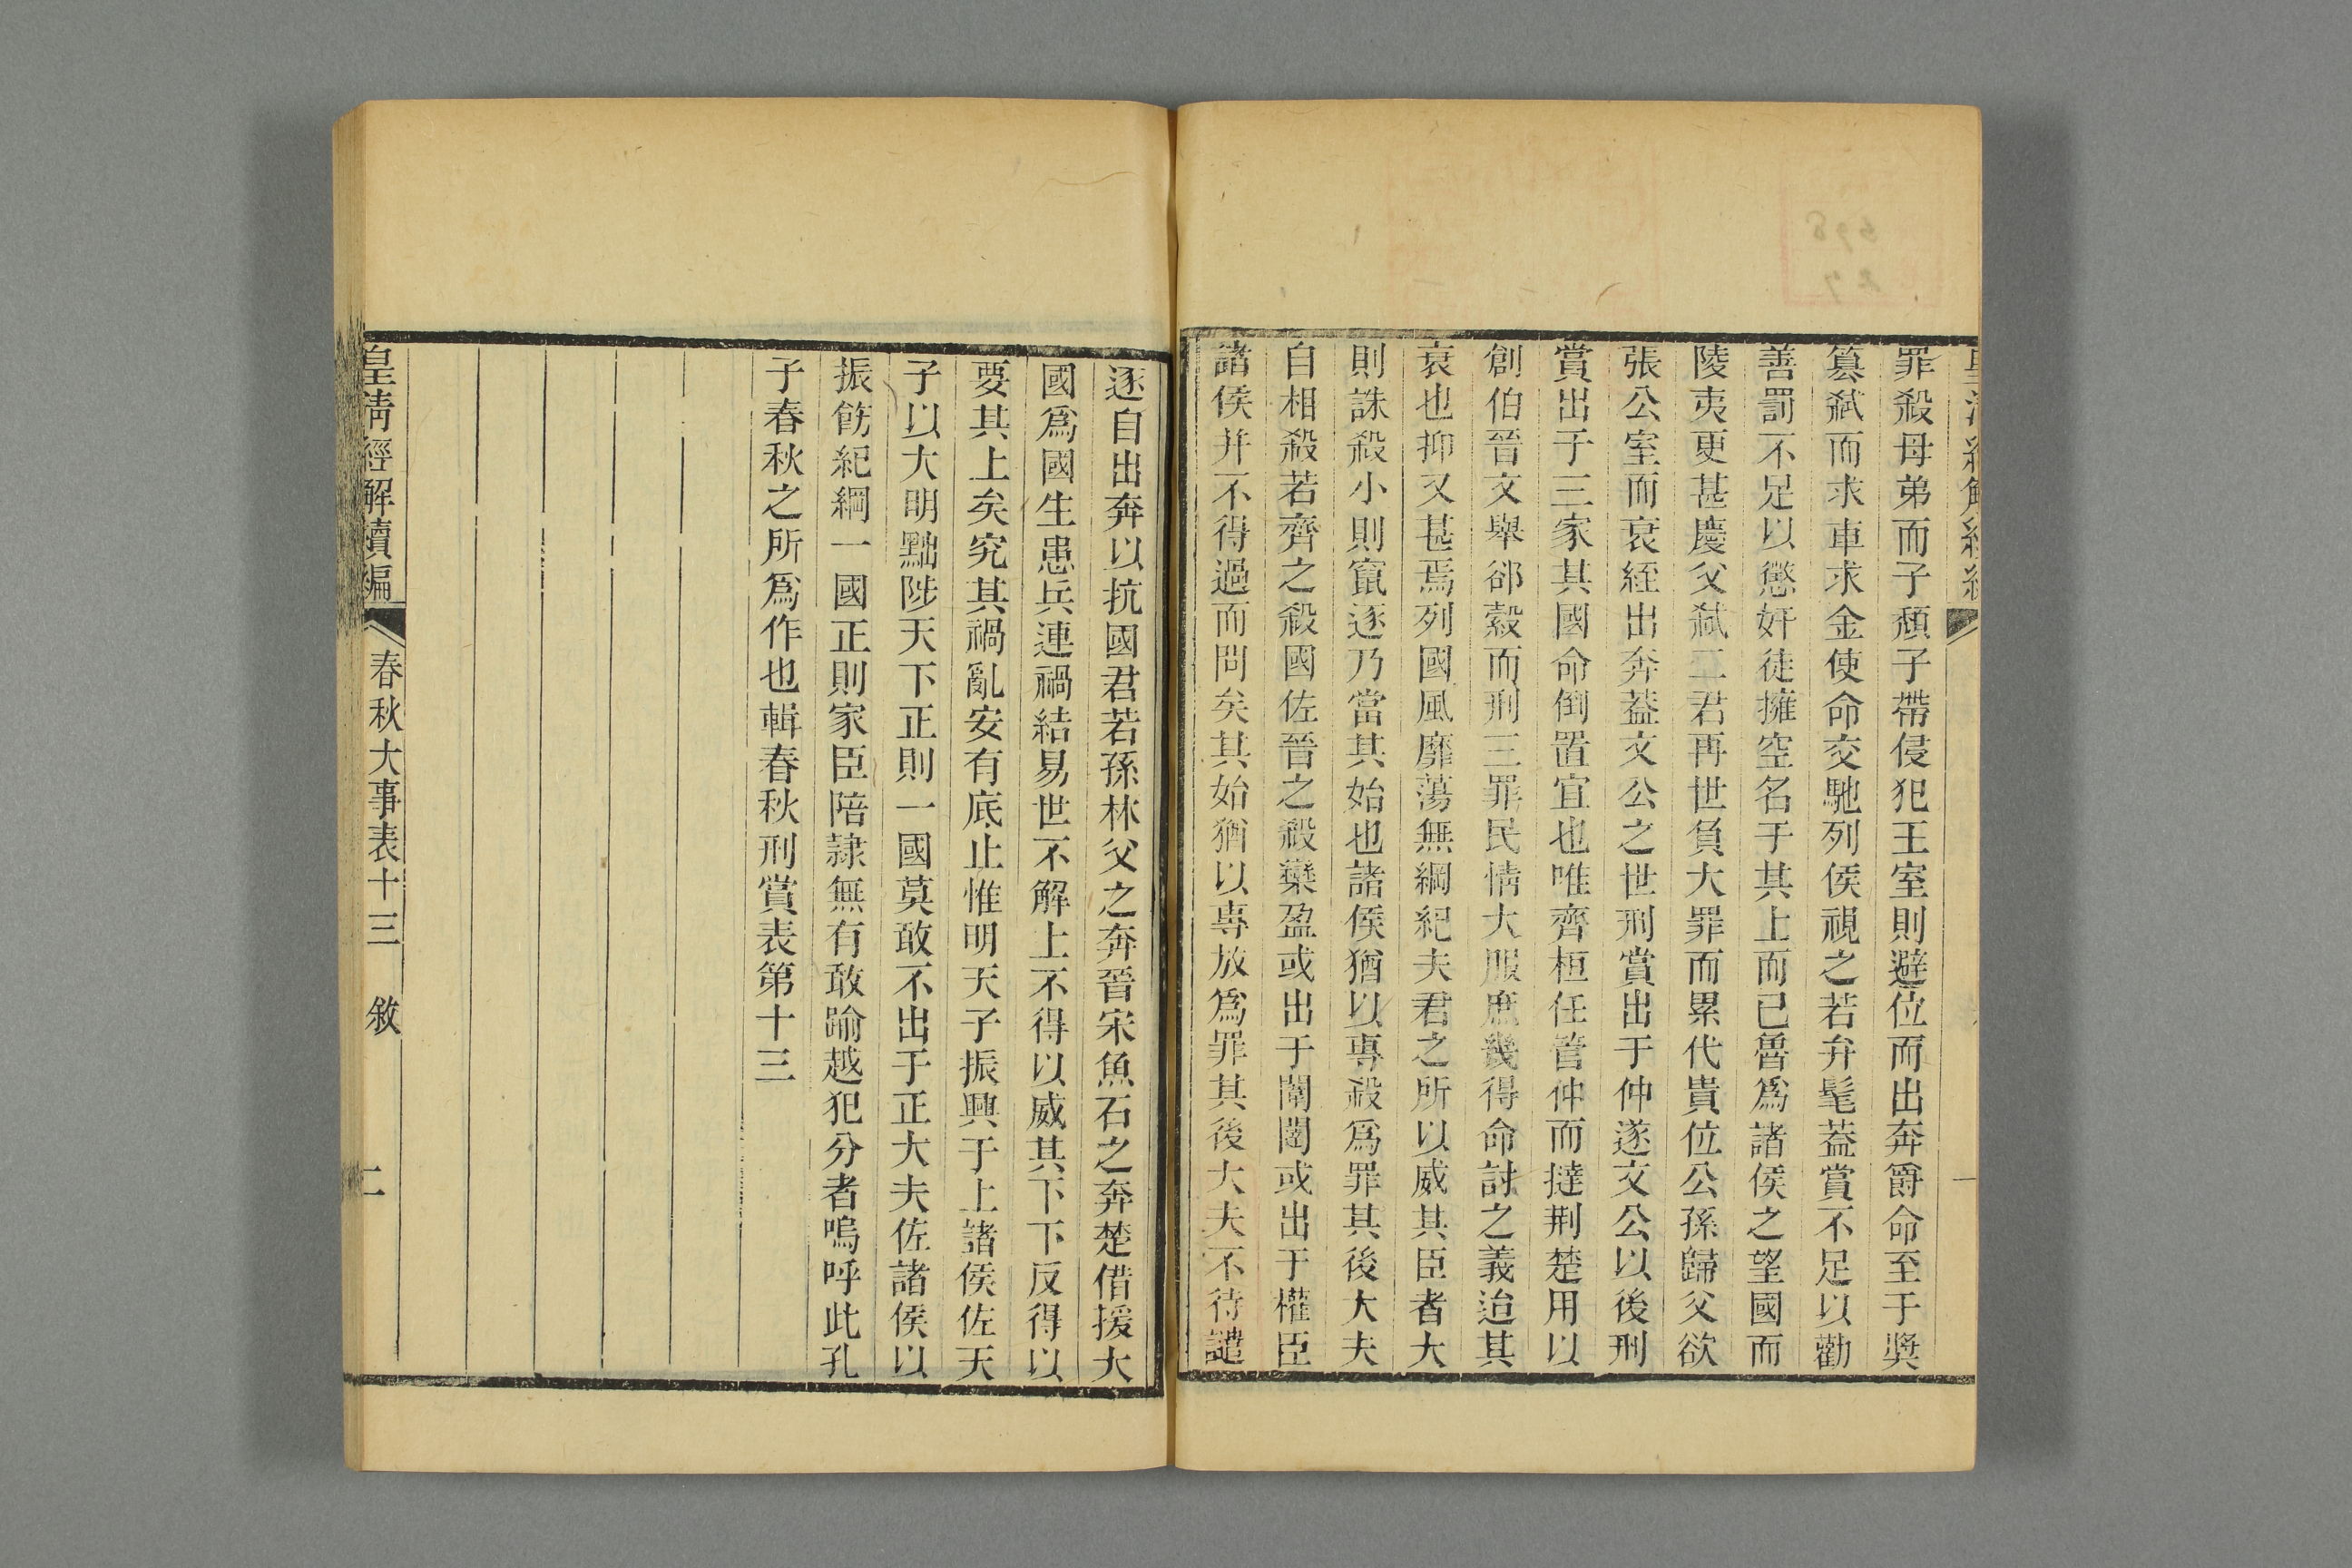 罪殺母弟而子頹子帶侵犯王室則避位而出奔爵命至于獎
簒弒而求車求金使命交馳列侯視之若弁髦葢賞不足以勸
善罰不足以懲奸徒擁空名于其上而已魯爲諸侯之望國而
陵夷更甚慶父弒二君再世負大罪而累代貴位公孫歸父欲
張公室而衰絰出奔葢文公之世刑賞出于仲遂文公以後刑
賞出于三家其國命倒置宜也唯齊桓任管仲而撻荆楚用以
創伯晉文舉郤縠而刑三罪民情大服庶幾得命討之義迨其
衰也抑又甚焉列國風靡蕩無綱紀夫君之所以威其臣者大
則誅殺小則竄逐乃當其始也諸侯猶以專殺爲罪其後大夫
自相殺若齊之殺國佐晉之殺欒盈或出于闈闥或出于權臣
諸侯并不得過而問矣其始猶以專放爲罪其後大夫不待譴
逐自出奔以抗國君若孫林父之奔晉宋魚石之奔楚借援大
國爲國生患兵連禍結易世不解上不得以威其下下反得以
要其上矣究其禍亂安有底止惟明天子振興于上諸侯佐天
子以大明黜陟天下正則一國莫敢不出于正大夫佐諸侯以
振飭紀綱一國正則家臣陪隸無有敢踰越犯分者嗚呼此孔
子春秋之所爲作也輯春秋刑賞表第十三
皇清經解續編 春秋大事表十三 敘 二